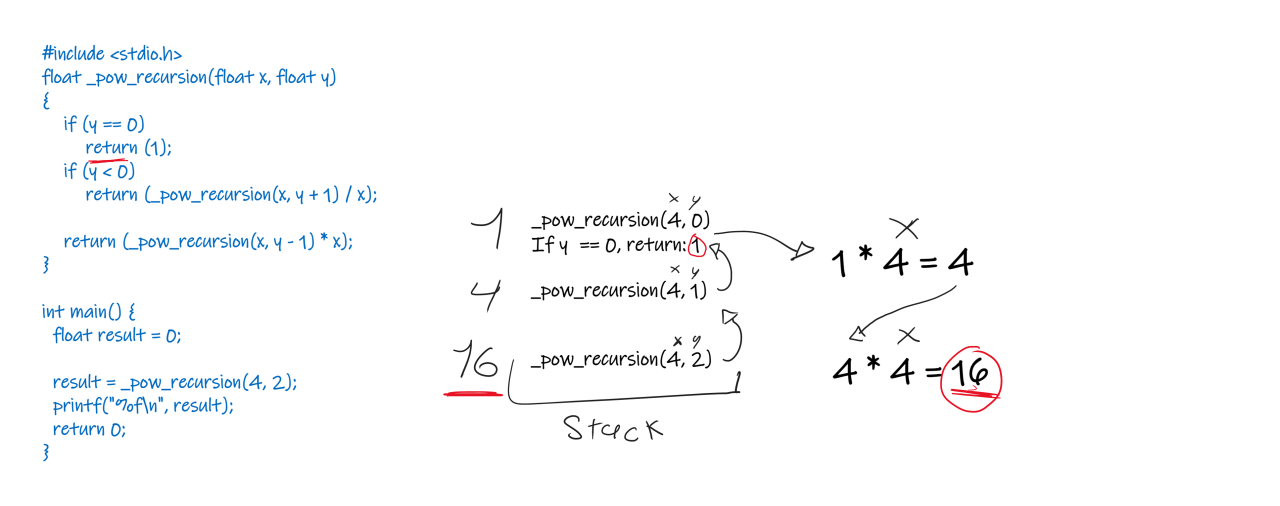 #include <stdio.h>
float _pow_recursion(float x, float y)
{
if (y == 0)
return (1);
if (y < 0)
return (_pow_recursion(x, y + 1) / x);
return (_pow_recursion(x, y - 1) * x);
}
int main() {
float result = 0;
result = _pow_recursion(4, 2);
printf("%f\n", result);
return 0;
}
x y
1 _pow_recursion(4, 0)
If y == 0, return: 1
x y
4 _pow_recursion(4, 1)
x y
16 _pow_recursion(4, 2)
Stack
x
1 * 4 = 4
x
4 * 4 = 16